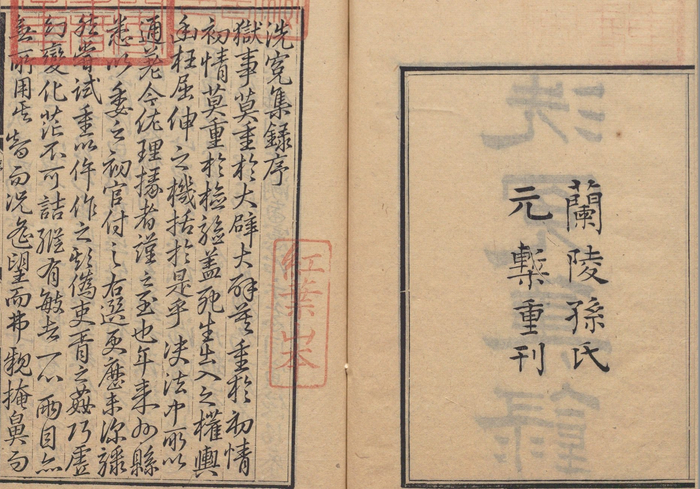 蘭陵孫氏
元槧重刊
洗冤集錄序
獄事莫重於大辟大辟莫重於初情
初情莫重於檢驗蓋死生出入之權輿
幽枉屈伸之機括於是乎決法中所以
通差今佐理掾者謹之至也年來州縣
悉以委之初官付之右選更歷未深驟
然嘗試重以仵作之欺僞吏胥之姦巧虛
幻變化茫不可詰縱有敏者一心兩目亦
無所用其智而況遙望而弗親掩鼻而
紅葉山本